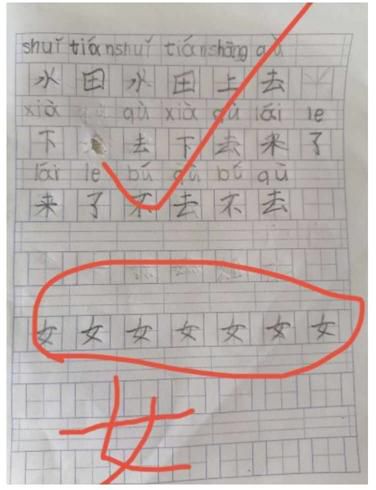 shuǐ tián shuǐ tián shāng qù
水 田 水 田 上 去
xià qù xià qù lái le
下 去 下 去 来 了
lái le bú qù bú qù
来 了 不 去 不 去
女 女 女 女 女 女 女
女